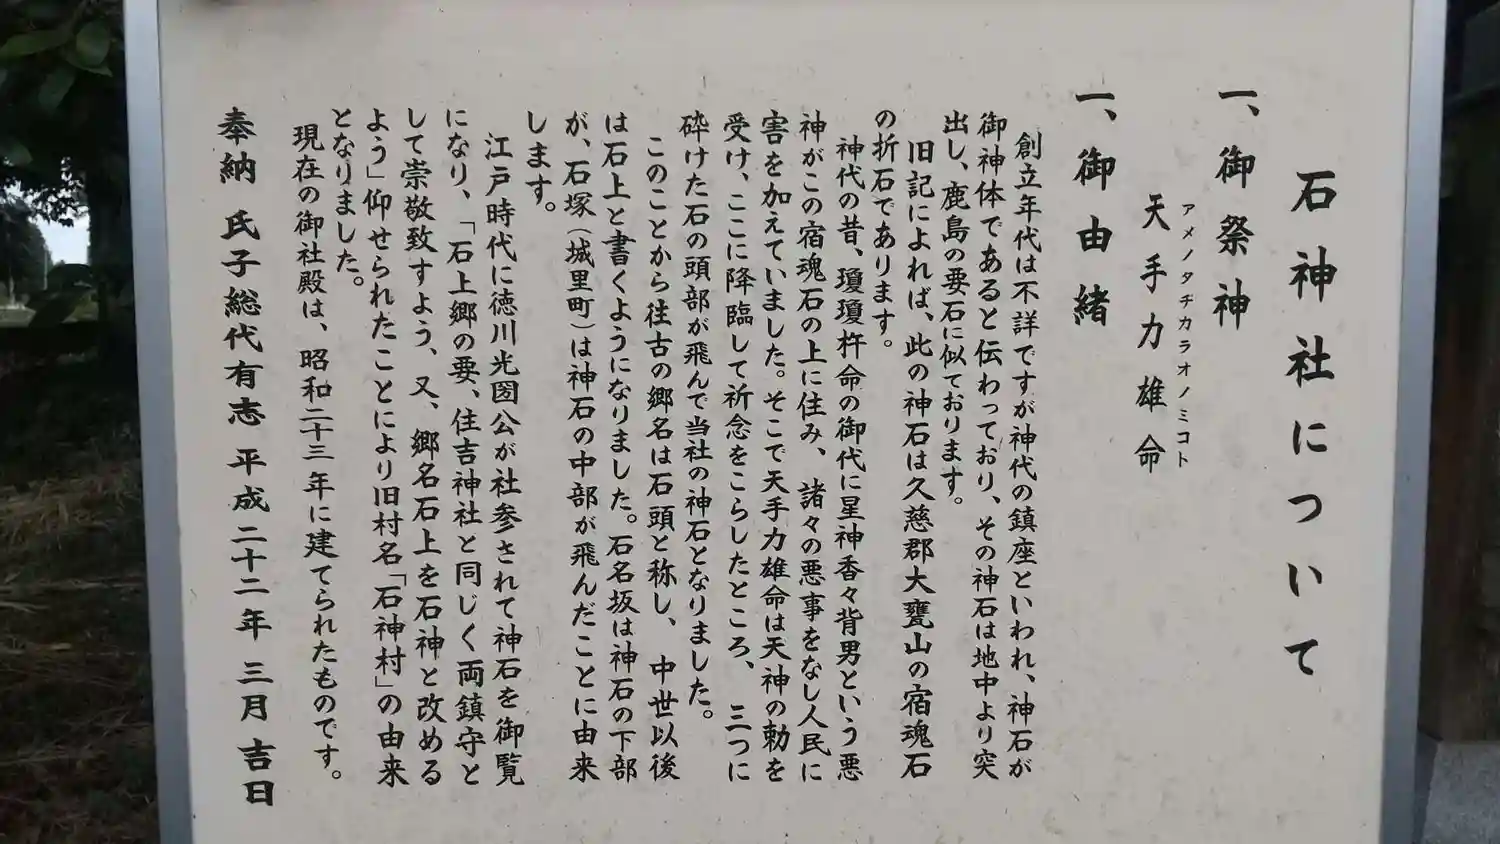 石神社について
一、御祭神
アメノタチカラオノミコト
天手力雄命
一、御由緒
創立年代は不詳ですが神代の鎮座といわれ、神石が
御神体であると伝わっており、その神石は地中より突
出し、鹿島の要石に似ております。
旧記によれば、此の神石は久慈郡大甕山の宿魂石
の折石であります。
神代の昔、瓊瓊杵命の御代に星神香々背男という悪
神がこの宿魂石の上に住み、諸々の悪事をなし人民に
害を加えていました。そこで天手力雄命は天神の勅を
受け、ここに降臨して祈念をこらしたところ、三つに
砕けた石の頭部が飛んで当社の神石となりました。
このことから往古の郷名は石頭と称し、中世以後
は石上と書くようになりました。石名坂は神石の下部
が、石塚(城里町)は神石の中部が飛んだことに由来
します。
江戸時代に徳川光圀公が社参されて神石を御覧
になり、「石上郷の要、住吉神社と同じく両鎮守と
して崇敬致すよう、又、郷名石上を石神と改める
よう」仰せられたことにより旧村名「石神村」の由来
となりました。
現在の御社殿は、昭和二十三年に建てられたものです。
奉納 氏子総代有志 平成二十二年 三月 吉日